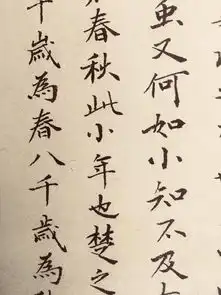 虫又何如小知不及
春秋此小年也楚之
千歲為春八千歲為